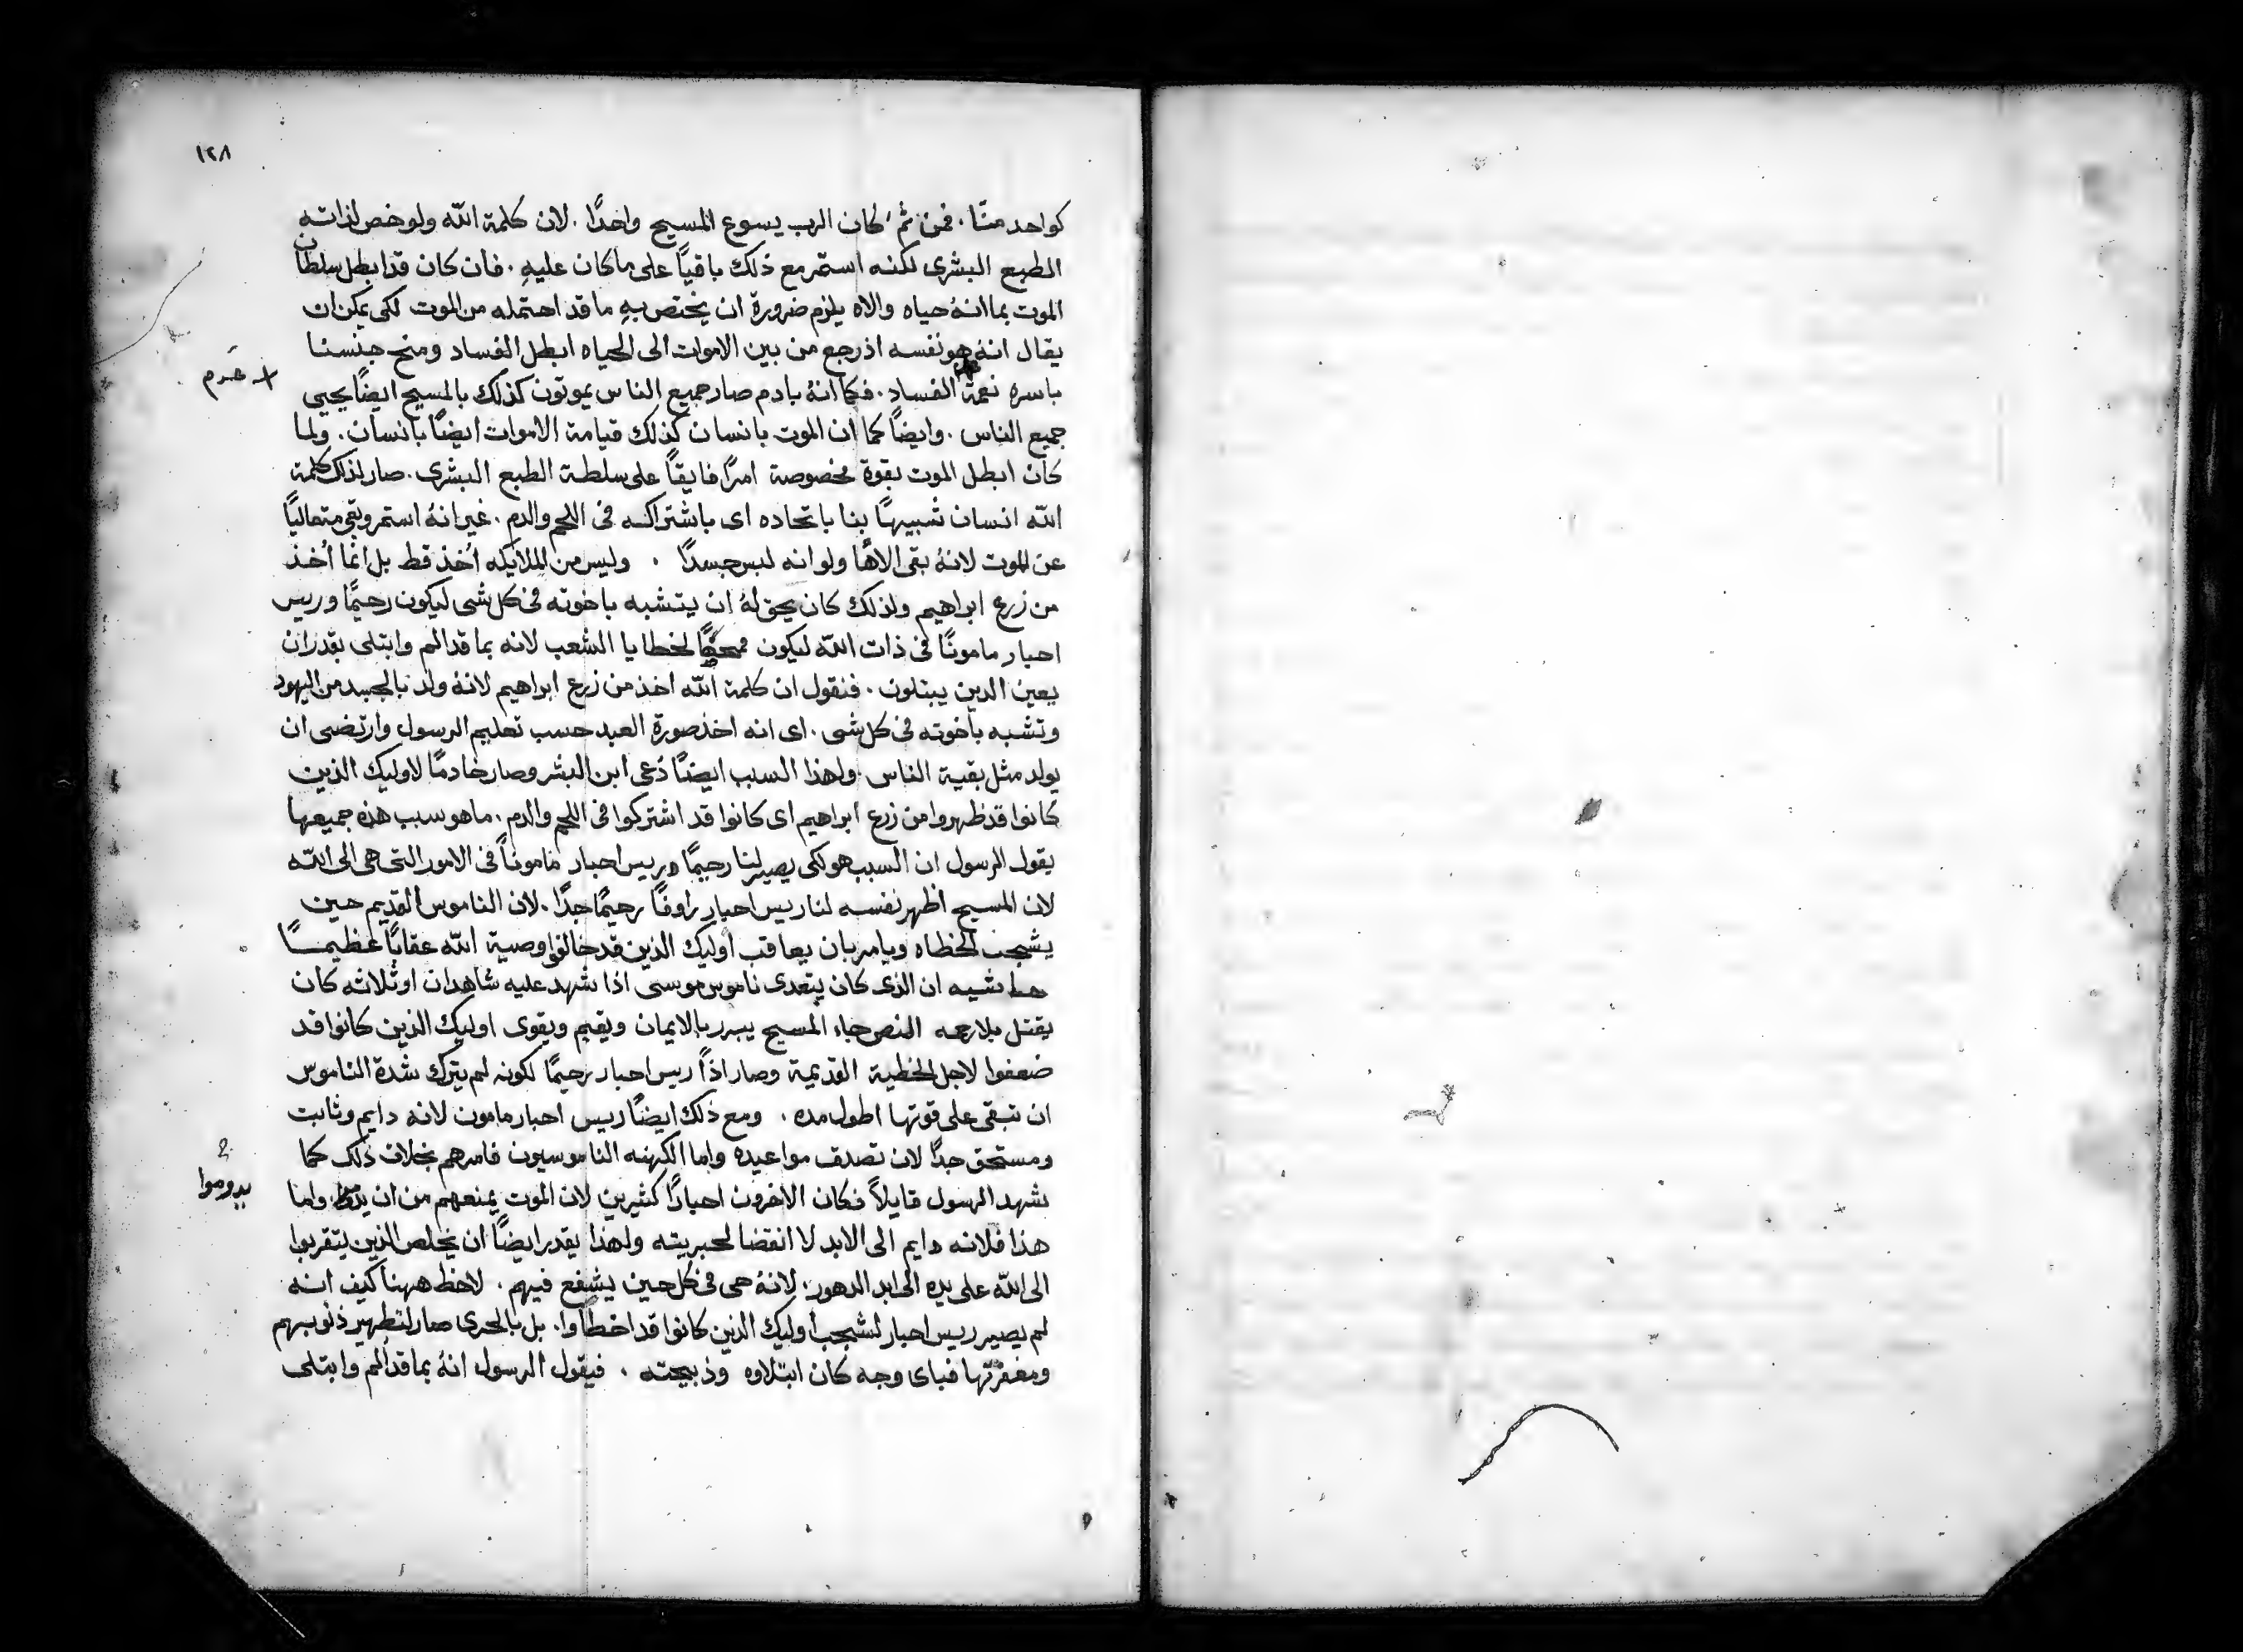 ١٢٨
كواحد منّا. فمن ثم كان الرب يسوع المسيح واحدًا. لان كلمة الله ولو خص لذاته
الطبع البشرى لكنه استمر مع ذلك باقيًا على ما كان عليهِ. فان كان قد ابطل سلطان
الموت بما انهُ حياه والاه يلزم ضرورة ان يختص بهِ ما قد احتمله من الموت لكى يمكن ان
يقال انهُ هو نفسه اذ رجع من بين الاموات الى الحياه ابطل الفساد ومنح جنسنا
باسره نعمة الفساد. فكما انهُ بادم صار جميع الناس يموتون كذلك بالمسيح ايضًا يحيى
عدم
جميع الناس. وايضًا كما ان الموت بانسان كذلك قيامة الاموات ايضًا بانسان. ولما
كان ابطل الموت بقوة مخصوصة امرًا فايقًا على سلطة الطبع البشرى. صار لذلك كلمة
الله انسان شبيهًا بنا باتحاده اى باشتراكه فى اللحم والدم. غير انهُ استمر وبقى متعاليًا
عن الموت لانهُ بقى الاهًا ولو انه لبس جسدًا. وليس من الملايكه اُخذ قط بل انما اُخذ
من زرع ابراهيم ولذلك كان يحق لهُ ان يتشبه باخوته فى كل شى ليكون رحيمًا وريس
احبار مامونًا فى ذات الله ليكون لخطايا الشعب لانه بما قد الم وابتلى يقدر ان
يعين الدين يبتلون. فنقول ان كلمة الله اخذ من زرع ابراهيم لانهُ ولد بالجسد من اليهود
وتشبه باخوته فى كل شى. اى انه اخذ صورة العبد حسب تعليم الرسول وارتضى ان
يولد مثل بقية الناس. ولهذا السبب ايضًا دُعى ابن البشر وصار خادمًا لاوليك الذين
كانوا قد ظهروا من زرع ابراهيم اى كانوا قد اشتركوا فى اللحم والدم. ما هو سبب هذه جميعها
يقول الرسول ان السبب هو لكى يصير لنا رحيمًا وريس احبار مامونًا فى الامور التى هى الى الله
لان المسيح اظهر نفسه لنا ريس احبار راوفًا رحيمًا جدًا. لان الناموس القديم حين
يشجب الخطاه ويامر بان يعاقب اوليك الذين قد خالفوا وصية الله عقابًا عظيمًا
حاشيه ان الذى كان يتعدى ناموس موسى اذا شهد عليه شاهدان او ثلاثه كان
يقتل بلا رحمه النص جاء المسيح يبرر بالايمان ويقيم ويقوى اوليك الذين كانوا قد
ضعفوا لاجل الخطية القديمة وصار اذاً ريس احبار رحيمًا لكونه لم يترك شدة الناموس
ان تبقى على قوتها اطول مده. ومع ذلك ايضًا ريس احبار مامون لانه دايم وثابت
ومستحق جدًا لان تصدق مواعيده واما الكهنه الناموسيون فامرهم بخلاف ذلك كما
شهد الرسول قايلاً فكان الاخرون احبارًا كثيرين لان الموت يمنعهم من ان واما
يدوموا
هذا فلانه دايم الى الابد لا انقضا لحبريته ولهذا يقدر ايضًا ان يخلص الذين يتقربوا
الى الله على يده الى ابد الدهور. لانهُ حى فى كل حين يشفع فيهم. لاحظ ههنا كيف انه
لم يصير ريس احبار لشجب اوليك الذين كانوا قد اخطاوا. بل بالحرى صار لتطهير ذنوبهم
ومغفرتها فباى وجه كان ابتلاوه وذبيحته. فيقول الرسول انهُ بما قد الم وابتلى